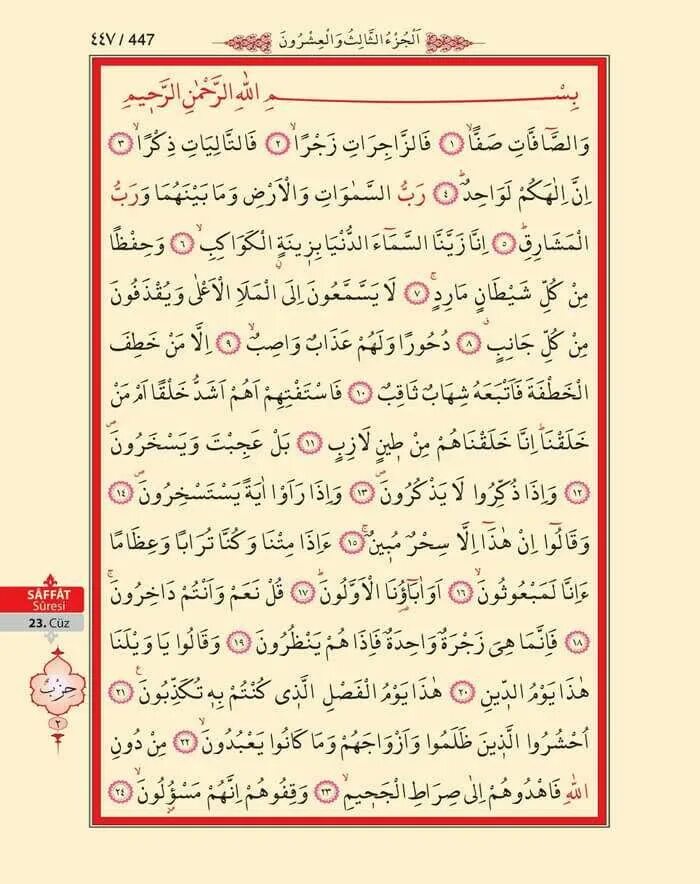 ٤٤٧ / 447
اَلْجُزْءُ الثَّالِثُ وَالْعِشْرُونَ
بِسْمِ اللّٰهِ الرَّحْمٰنِ الرَّح۪يمِ
وَالصَّٓافَّاتِ صَفًّاۙ ١ فَالزَّاجِرَاتِ زَجْرًاۙ ٢ فَالتَّالِيَاتِ ذِكْرًاۙ ٣
اِنَّ اِلٰهَكُمْ لَوَاحِدٌۜ ٤ رَبُّ السَّمٰوَاتِ وَالْاَرْضِ وَمَا بَيْنَهُمَا وَرَبُّ
الْمَشَارِقِۜ ٥ اِنَّا زَيَّنَّا السَّمَٓاءَ الدُّنْيَا بِز۪ينَةٍۨ الْكَوَاكِبِۙ ٦ وَحِفْظًا
مِنْ كُلِّ شَيْطَانٍ مَارِدٍۚ ٧ لَا يَسَّمَّعُونَ اِلَى الْمَلَاِ الْاَعْلٰى وَيُقْذَفُونَ
مِنْ كُلِّ جَانِبٍۗ ٨ دُحُورًا وَلَهُمْ عَذَابٌ وَاصِبٌۙ ٩ اِلَّا مَنْ خَطِفَ
الْخَطْفَةَ فَاَتْبَعَهُ شِهَابٌ ثَاقِبٌ ١٠ فَاسْتَفْتِهِمْ اَهُمْ اَشَدُّ خَلْقًا اَمْ مَنْ
خَلَقْنَاۜ اِنَّا خَلَقْنَاهُمْ مِنْ ط۪ينٍ لَازِبٍ ١١ بَلْ عَجِبْتَ وَيَسْخَرُونَۖ
١٢ وَاِذَا ذُكِّرُوا لَا يَذْكُرُونَۖ ١٣ وَاِذَا رَاَوْا اٰيَةً يَسْتَسْخِرُونَۖ ١٤
وَقَالُٓوا اِنْ هٰذَٓا اِلَّا سِحْرٌ مُب۪ينٌۚ ١٥ ءَاِذَا مِتْنَا وَكُنَّا تُرَابًا وَعِظَامًا
ءَاِنَّا لَمَبْعُوثُونَۙ ١٦ اَوَاٰبَٓاؤُ۬نَا الْاَوَّلُونَۜ ١٧ قُلْ نَعَمْ وَاَنْتُمْ دَاخِرُونَۚ
١٨ فَاِنَّمَا هِيَ زَجْرَةٌ وَاحِدَةٌ فَاِذَا هُمْ يَنْظُرُونَ ١٩ وَقَالُوا يَا وَيْلَنَا
هٰذَا يَوْمُ الدّ۪ينِ ٢٠ هٰذَا يَوْمُ الْفَصْلِ الَّذ۪ي كُنْتُمْ بِه۪ تُكَذِّبُونَ۟ ٢١
اُحْشُرُوا الَّذ۪ينَ ظَلَمُوا وَاَزْوَاجَهُمْ وَمَا كَانُوا يَعْبُدُونَۙ ٢٢ مِنْ دُونِ
اللّٰهِ فَاهْدُوهُمْ اِلٰى صِرَاطِ الْجَح۪يمِۙ ٢٣ وَقِفُوهُمْ اِنَّهُمْ مَسْؤُ۫لُونَۙ ٢٤
SÂFFÂT
Sûresi
23. Cüz
حِزْبٌ
٢